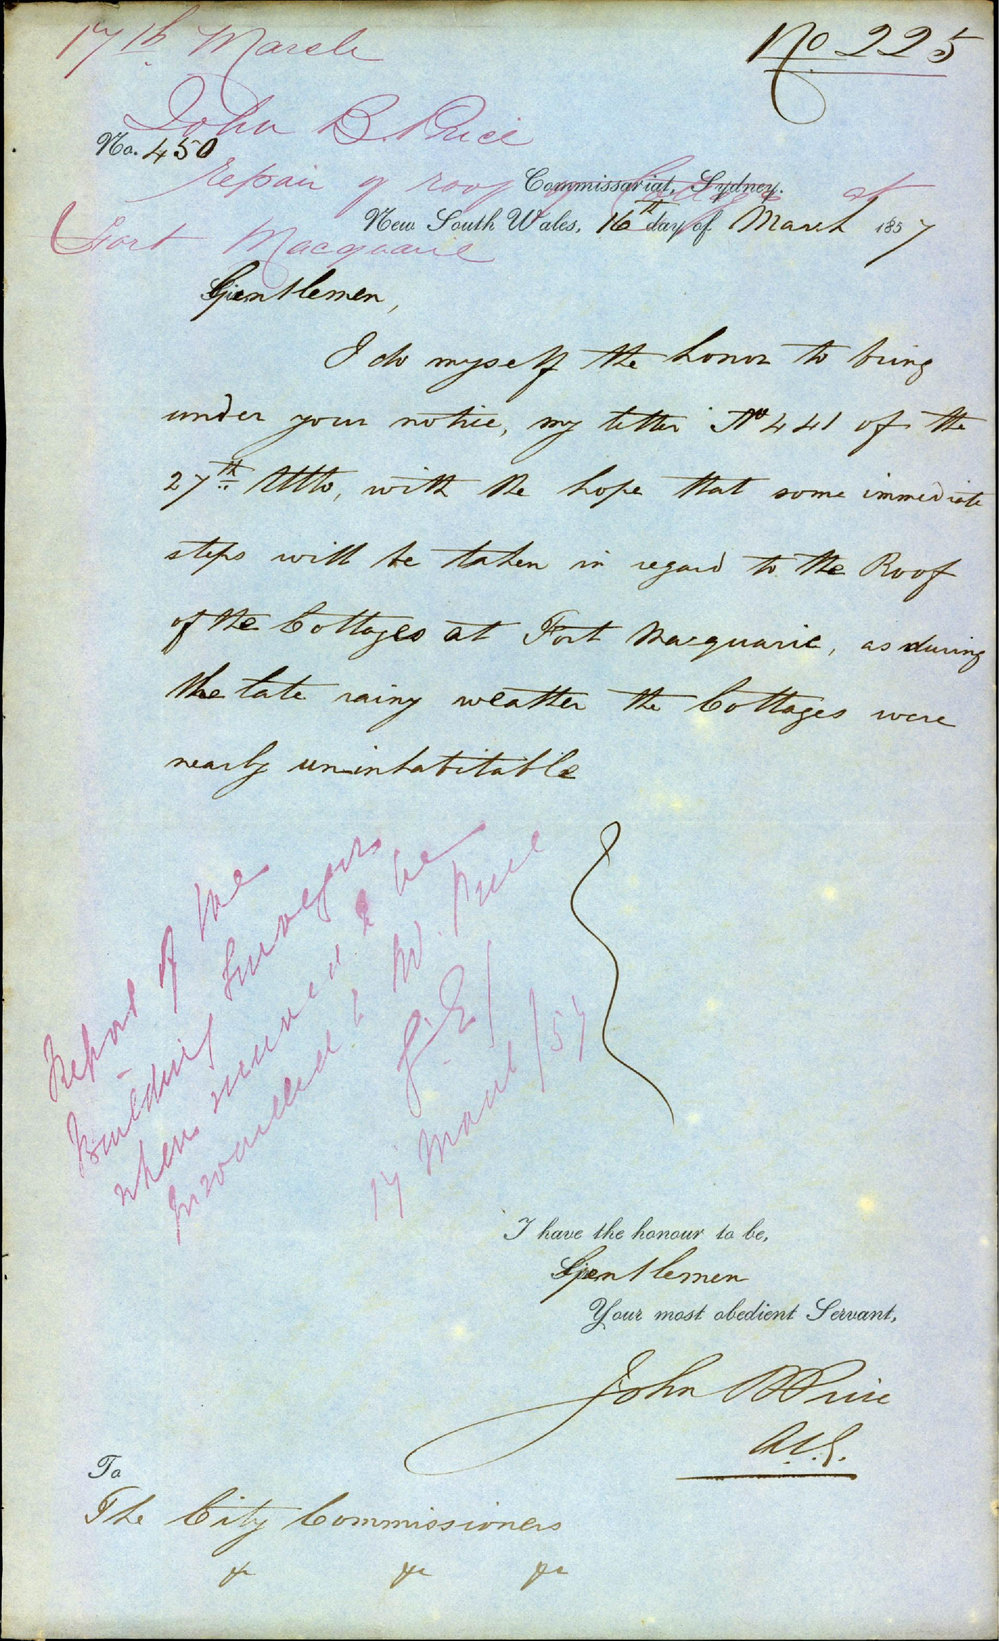 17th March
No 225
John B Price
No. 450
repair of roof of Cottages at
Commissariat, Sydney.
New South Wales, 16th day of March 1857
Fort Macquarie
Gentlemen,
I do myself the honor to bring
under your notice, my letter No 441 of the
27th Ulto, with the hope that some immediate
steps will be taken in regard to the Roof
of the Cottages at Fort Macquarie, as during
the late rainy weather the Cottages were
nearly uninhabitable
Report of the
Building Surveyor
when received to be
forwarded to Mr. Price
17 March/57
I have the honour to be,
Gentlemen
Your most obedient Servant,
John B Price
A.C.G.
To
The City Commissioners
&c &c &c